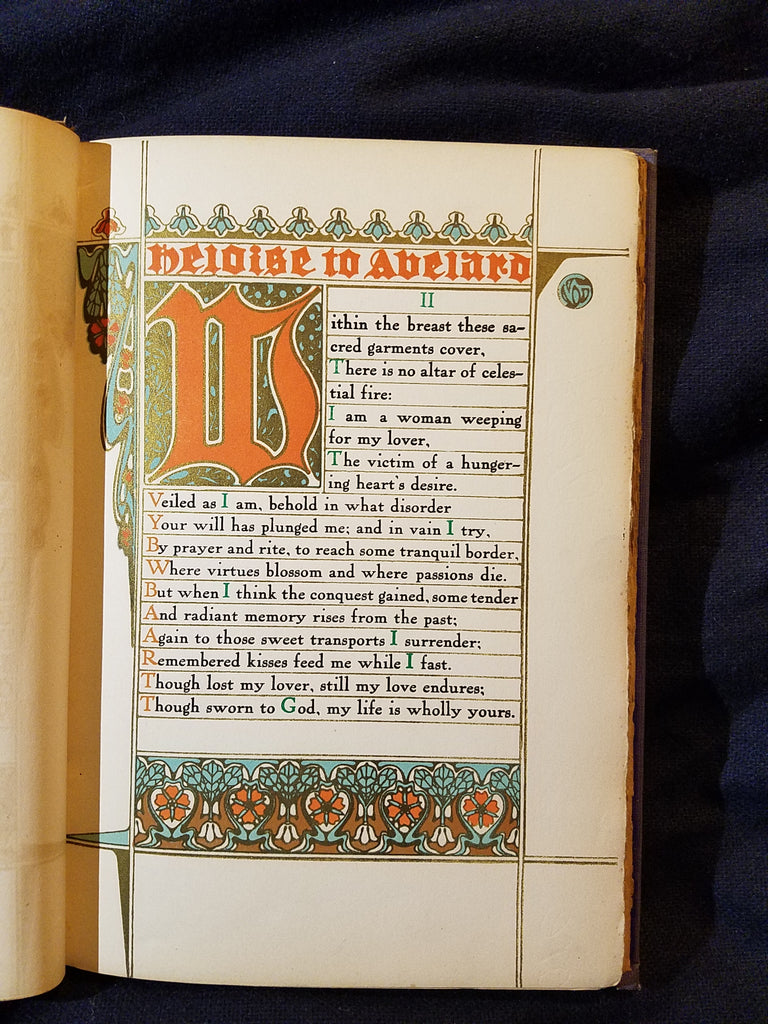 Heloise to Abelard
II
Within the breast these sa-
cred garments cover,
There is no altar of celes-
tial fire:
I am a woman weeping
for my lover,
The victim of a hunger-
ing heart's desire.
Veiled as I am, behold in what disorder
Your will has plunged me; and in vain I try,
By prayer and rite, to reach some tranquil border,
Where virtues blossom and where passions die.
But when I think the conquest gained, some tender
And radiant memory rises from the past;
Again to those sweet transports I surrender;
Remembered kisses feed me while I fast.
Though lost my lover, still my love endures;
Though sworn to God, my life is wholly yours.